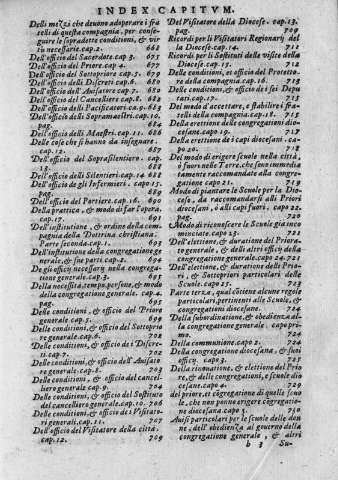 INDEX CAPITVM.
Delli mezzi che deuono adoperare i fra
telli di questa compagnia, per conse-
guire le sopradette conditioni, & vir
tù necessarie.cap.2. 668
Dell'officio del Sacerdote.cap.3. 675
Dell'officio del Priore.cap.4. 677
Dell'officio del Sottopriore cap.5. 679
Dell'officio delli Discreti.cap.6. 680
Dell'officio dell'Auisatore.cap.7. 680
Dell'officio del Cancelliero.cap.8. 682
Dell'officio delli Pacificatori.ca.9. 683
Dell'officio delli Sopramastri.cap.10.
pag. 684
Dell'officio delli Maestri.cap.11. 686
Delle cose che si hanno da insegnare.
cap.12. 687
Dell'officio del Soprasilentiero.cap.
13. 688
Dell'officio delli Silentieri.cap.14 688
Dell'officio de gli Infermieri. capo 15.
pag. 689
Dell'officio del Portiere.cap.16. 690
Della prattica, & modo di far l'opera.
cap.17. 691
Dell'institutione, & ordine della com-
pagnia della Dottrina christiana.
Parte seconda.cap.1. 693
Dell'institutione della congregatione ge
nerale, & sue parti.cap.2. 694
De gli officij necessarij nella congrega-
tione generale.cap.3. 695
Della necessità, tempo, persone, & modo
della congregatione generale. cap.4.
pag. 695
Delle conditioni, & officio del Priore
generale.cap.5.
Delle conditioni, & officio del Sottoprio
re generale.cap.6. 702
Delle conditioni, & officio de i Discre-
ti.cap.7. 702
Delle conditioni, & officio dell'Auisato
re generale.cap.8. 703
Delle conditioni, & officio del cancel-
liero generale.cap.9. 704
Delle conditioni, & officio del Sostituto
del cancelliero generale.cap.10. 706
Delle conditioni, & officio de i Visitato-
ri generali.cap.11. 707
Dell'officio del Visitatore della città.
cap.12. 709
Del Visitatore della Diocese. cap.13.
pag. 709
Ricordi per li Visitatori Regionarij del
la Diocese.cap.14. 711
Ricordi per li Sostituti delle visite della
Diocese.cap.15. 712
Delle conditioni, et officio del Protetto-
re della compagnia.cap.16. 713
Delle conditioni, & officio de i sei Depu
tati.cap.17. 715
Del modo d'accettare, e stabilire i fra-
telli della compagnia.cap.18. 717
Della erettione delle congregationi dio-
cesane.capo 19. 717
Della erettione de i capi diocesani.ca-
po 20. 718
Del modo di erigere scuole nella città,
ò fuori nelle Terre, che sono immedia
tamente raccomandate alla congre-
gatione.capo 21. 719
Modo di piantare le Scuole per la Dio-
cese, da raccomandarsi alli Priori
diocesani, ò alli capi fuori. capo 22.
pag. 720
Modo di riconoscere le Scuole già inco
minciate.capo 23. 721
Dell'elettione, & duratione del Priora-
to generale, & delli altri officij della
congregatione generale.capo 24. 721
Dell'elettione, & duratione delli Prio-
ri, & Sottopriori particolari delle
Scuole.capo 25. 723
Parte terza, qual cōtiene alcune regole
particolari, pertinenti alle Scuole, &
congregationi diocesane.
Della subordinatione, & obedienza al-
la congregatione generale. capo pri-
mo. 724
Della communione.capo 2. 724
Della congregatione diocesana, & suoi
officij. capo 3. 727
Della riformatione, & elettione del Prio
re, & delle congregationi, e scuole dio
cesane.capo 4. 729
del priore, et congregatione di quelle scuo
le, che non ponno erigere congregatio
ne diocesana.capo 5. 730
Auisi particolari per le scuole delle don
ne, dell'obedienza al gouerno della
congregatione generale, & altri
b 3 Su-